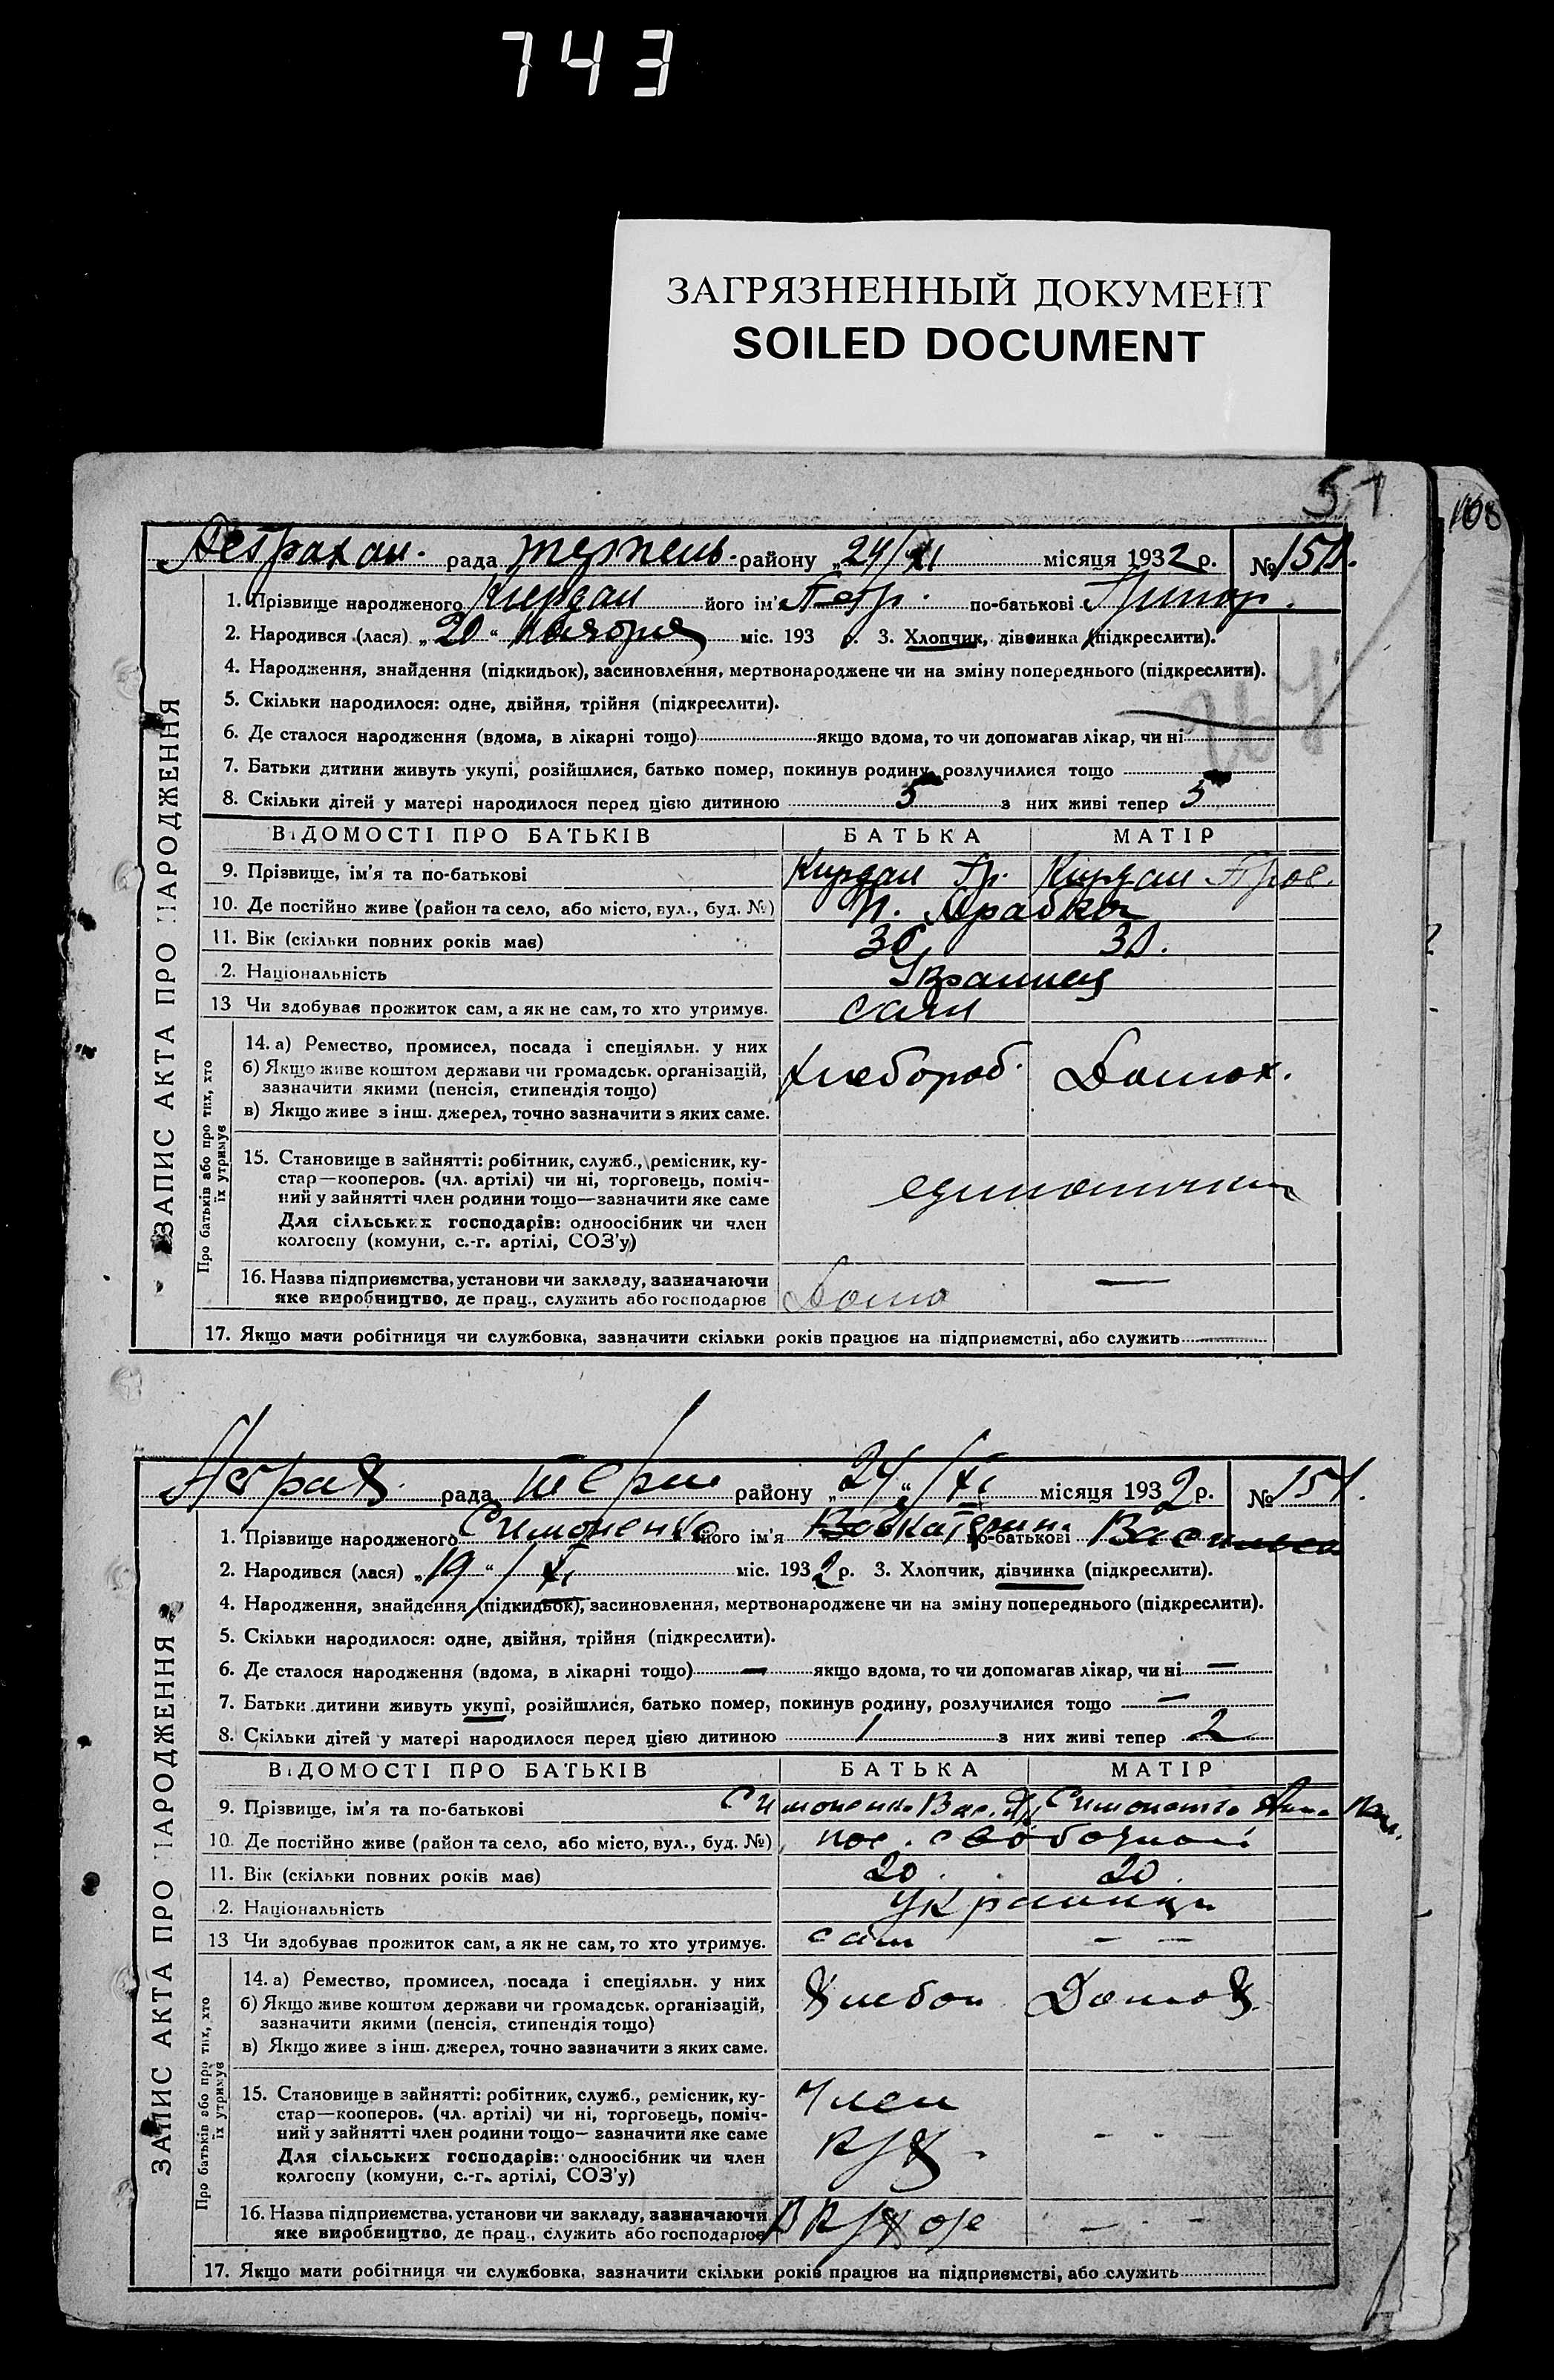 743
ЗАГРЯЗНЕННЫЙ ДОКУМЕНТ
SOILED DOCUMENT
51
108
Астрахан. рада район у „24/XI місяця 1932 р. № 150.
1. Прізвище народженого Кирдан його ім'я Петр. по-батькові Григор.
2. Народився (лася) „20“ ноября міс. 193 р. 3. Хлопчик, дівчинка (підкреслити).
4. Народження, знайдення (підкидьок), засиновлення, мертвонароджене чи на зміну попереднього (підкреслити).
5. Скільки народилося: одне, двійня, трійня (підкреслити).
6. Де сталося народження (вдома, в лікарні тощо) якщо вдома, то чи допомагав лікар, чи ні
7. Батьки дитини живуть укупі, розійшлися, батько помер, покинув родину, розлучилися тощо
8. Скільки дітей у матері народилося перед цією дитиною 5 з них живі тепер 5
ВІДОМОСТІ ПРО БАТЬКІВ БАТЬКА МАТІР
9. Прізвище, ім'я та по-батькові Кирдан Гр. Кирдан
10. Де постійно живе (район та село, або місто, вул., буд. №)
11. Вік (скільки повних років має) 36 30.
2. Національність
13 Чи здобуває прожиток сам, а як не сам, то хто утримує. сам
14. а) Ремество, промисел, посада і спеціяльн. у них
б) Якщо живе коштом держави чи громадськ. організацій,
зазначити якими (пенсія, стипендія тощо)
в) Якщо живе з інш. джерел, точно зазначити з яких саме.
Хлебороб. Домох.
15. Становище в зайнятті: робітник, служб., ремісник, ку-
стар—кооперов. (чл. артілі) чи ні, торговець, поміч-
ний у зайнятті член родини тощо—зазначити яке саме
Для сільських господарів: одноосібник чи член
колгоспу (комуни, с.-г. артілі, СОЗ'у)
единоличник
16. Назва підприємства, установи чи закладу, зазначаючи
яке виробництво, де прац., служить або господарює Дома —
17. Якщо мати робітниця чи службовка, зазначити скільки років працює на підприємстві, або служить
Про батьків або про тих, хто
їх утримує
ЗАПИС АКТА ПРО НАРОДЖЕННЯ
Астрах. рада Терп району „24“ /XI місяця 1932 р. № 151.
1. Прізвище народженого Симоненко його ім'я Катерин. по-батькові Васильев
2. Народився (лася) „19“ / XI міс. 1932 р. 3. Хлопчик, дівчинка (підкреслити).
4. Народження, знайдення (підкидьок), засиновлення, мертвонароджене чи на зміну попереднього (підкреслити).
5. Скільки народилося: одне, двійня, трійня (підкреслити).
6. Де сталося народження (вдома, в лікарні тощо) — якщо вдома, то чи допомагав лікар, чи ні —
7. Батьки дитини живуть укупі, розійшлися, батько помер, покинув родину, розлучилися тощо —
8. Скільки дітей у матері народилося перед цією дитиною 1 з них живі тепер 2
ВІДОМОСТІ ПРО БАТЬКІВ БАТЬКА МАТІР
9. Прізвище, ім'я та по-батькові Симоненко Вас. Симоненко Анна
10. Де постійно живе (район та село, або місто, вул., буд. №) пос. свободный
11. Вік (скільки повних років має) 20 20
2. Національність Украинцы
13 Чи здобуває прожиток сам, а як не сам, то хто утримує. сам — —
14. а) Ремество, промисел, посада і спеціяльн. у них
б) Якщо живе коштом держави чи громадськ. організацій,
зазначити якими (пенсія, стипендія тощо)
в) Якщо живе з інш. джерел, точно зазначити з яких саме.
Домох.
15. Становище в зайнятті: робітник, служб., ремісник, ку-
стар—кооперов. (чл. артілі) чи ні, торговець, поміч-
ний у зайнятті член родини тощо— зазначити яке саме
Для сільських господарів: одноосібник чи член
колгоспу (комуни, с.-г. артілі, СОЗ'у)
Член
к/х - - -
16. Назва підприємства, установи чи закладу, зазначаючи
яке виробництво, де прац., служить або господарює В к/хозе — - -
17. Якщо мати робітниця чи службовка, зазначити скільки років працює на підприємстві, або служить
Про батьків або про тих, хто
їх утримує
ЗАПИС АКТА ПРО НАРОДЖЕННЯ